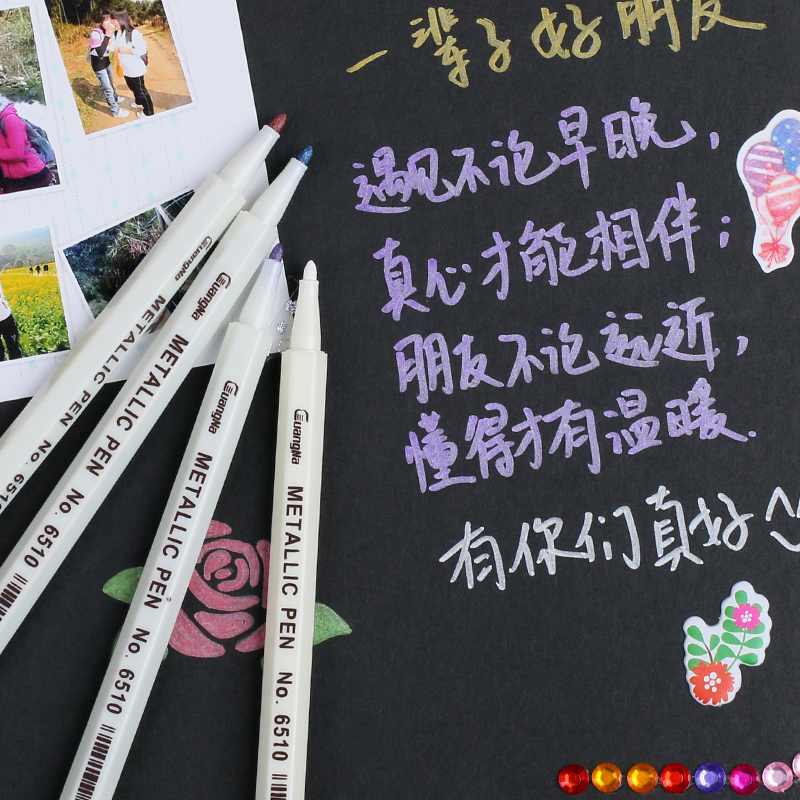 一辈子好朋友
遇见不论早晚，
真心才能相伴；
朋友不论远近，
懂得才有温暖.
有你们真好
GuangNa METALLIC PEN No. 6510
GuangNa METALLIC PEN No. 6510
GuangNa METALLIC PEN No. 6510
GuangNa METALLIC PEN No. 6510